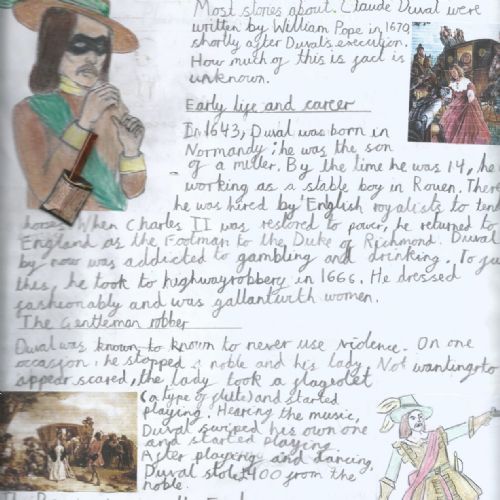 Most stories about Claude Duval were
written by William Pope in 1670,
shortly after Duval's execution.
How much of this is fact is
unknown.
Early life and career
In 1643, Duval was born in
Normandy; he was the son
of a miller. By the time he was 14, he
working as a stable boy in Rouen. There
he was hired by English royalists to tend
horses. When Charles II was restored to power, he returned to
England as the Footman to the Duke of Richmond. Duval
by now was addicted to gambling and drinking. To
this, he took to highwayrobbery in 1666. He dressed
fashionably and was gallantwith women.
The Gentleman robber
Duval was known to known to never use violence. On one
occasion, he stopped a noble and his lady. Not wantingto
appear scared, the lady took a flageolet
(a type of flute) and started
playing. Hearing the music,
Duval swiped his own one
and started playing
After playing and dancing,
Duval stole £400 from the
noble.